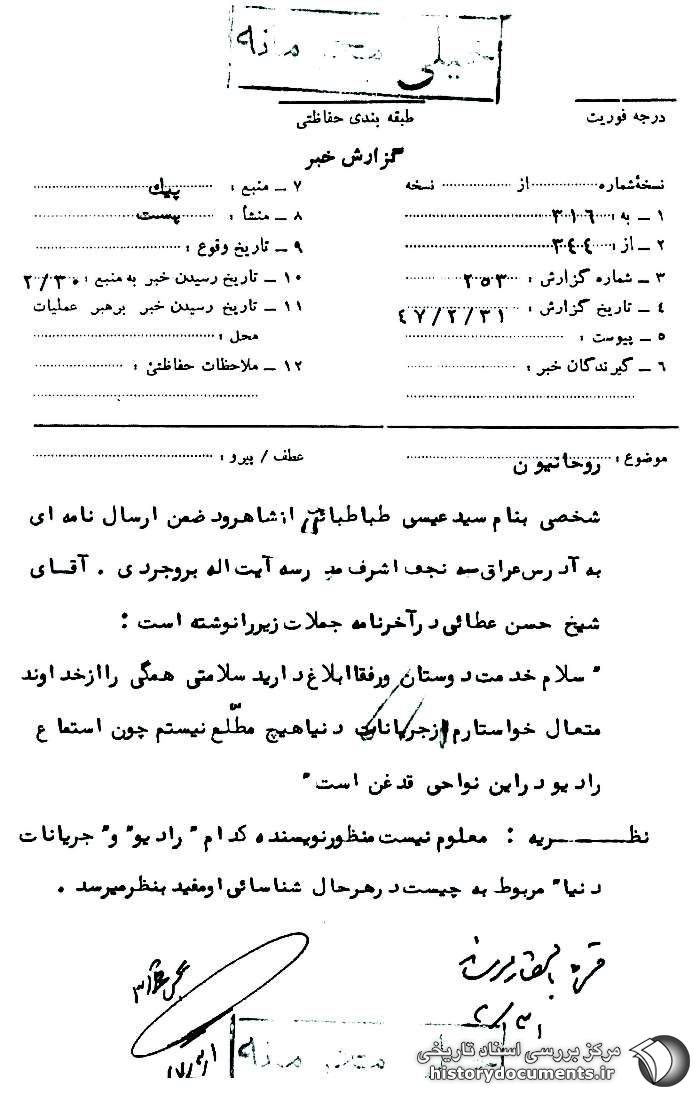 خیلی محرمانه
درجه فوریت
طبقه بندی حفاظتی
گزارش خبر
نسخهٔ شماره ............ از ............ نسخه
۱ ــ به : ۳۱۶
۲ ــ از : ۳۴۴
۳ ــ شماره گزارش : ۲۵۳
۴ ــ تاریخ گزارش : ۴۷/۲/۳۱
۵ ــ پیوست :
۶ ــ گیرندگان خبر :
۷ ــ منبع : پیک
۸ ــ منشأ : پست
۹ ــ تاریخ وقوع :
۱۰ ــ تاریخ رسیدن خبر به منبع : ۲/۳۰
۱۱ ــ تاریخ رسیدن خبر برهبر عملیات
محل :
۱۲ ــ ملاحظات حفاظتی :
موضوع : روحانیون
عطف / پیرو :
شخصی بنام سید عیسی طباطبائی از شاهرود ضمن ارسال نامه ای
به آدرس عراق سه نجف اشرف مد رسه آیت اله بروجردی . آقای
شیخ حسن عطائی در آخرنامه جملات زیر رانوشته است :
" سلام خدمت دوستان ورفقا ابلاغ دارید سلامتی همگی را ازخداوند
متعال خواستارم از جریانات دنیا هیچ مطّلع نیستم چون استماع
رادیو در این نواحی قدغن است "
نظــــریه : معلوم نیست منظورنویسنده کدام " رادیو " و " جریانات
دنیا " مربوط به چیست در هرحال شناسائی او مفید بنظر میرسد .
۲/۳۱
محرمانه
مرکز بررسی اسناد تاریخی
historydocuments.ir